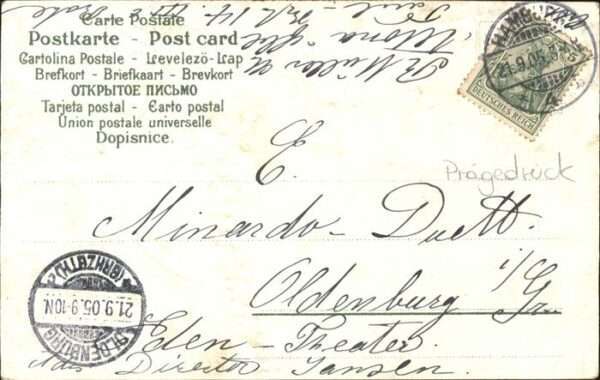 Carte Postale
Postkarte - Post card
Cartolina Postale - Levelező-Lap
Brefkort - Briefkaart - Brevkort
ОТКРЫТОЕ ПИСЬМО
Tarjeta postal - Carto postal
Union postale universelle
Dopisnice.
HAMBURG
21.9.05.
4
DEUTSCHES REICH
Prägedruck
E.
Minardo-Duett.
Oldenburg i/Gr.
Eden-Theater.
Director Jansen.
OLDENBURG
21.9.05.9-10N.
(GRHZGTH.)